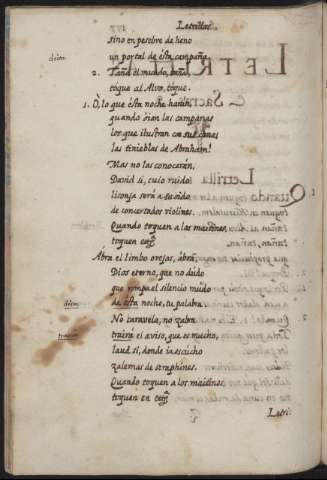 Letrillas.
sino en pesebre de heno
un portal de esta campaña.
2. Taña el mundo, taña,
toque al Alva, toque.
1. O, lo que esta noche harán
quando oian las campanas
los que ilustran con sus canes
las tinieblas de Abraham!
Mas no las conocerán,
David si, cuio ruido
lisonja será a su oido
de concertados violines.
Quando toquen a los maitines,
toquen en
Abra el limbo orejas, abra,
Dios eterno, que no dudo
que rompa el silencio mudo
de esta noche, tu palabra.
No caravela, no zabra
traerá el aviso, que es mucho,
laud si, donde ia escucho
zalemas de seraphines.
Quando toquen a los maitines
toquen en
Letri-